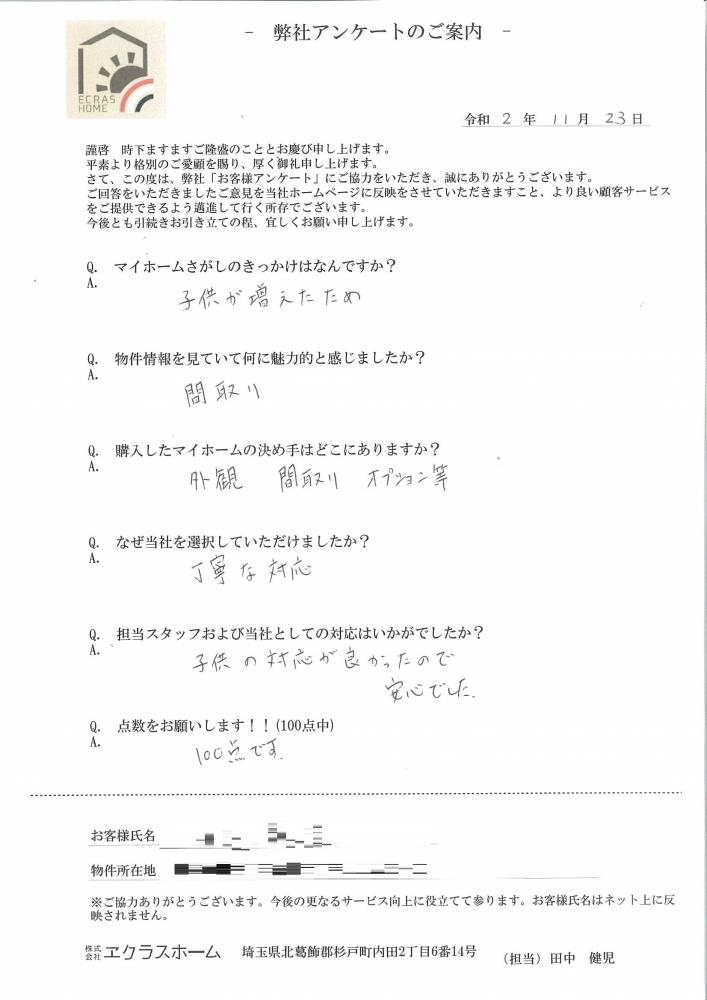 - 弊社アンケートのご案内 -
ECRAS
HOME
令和 2 年 11 月 23 日
謹啓 時下ますますご隆盛のこととお慶び申し上げます。
平素より格別のご愛顧を賜り、厚く御礼申し上げます。
さて、この度は、弊社「お客様アンケート」にご協力をいただき、誠にありがとうございます。
ご回答をいただきましたご意見を当社ホームページに反映をさせていただきますこと、より良い顧客サービス
をご提供できるよう邁進して行く所存でございます。
今後とも引続きお引き立ての程、宜しくお願い申し上げます。
Q. マイホームさがしのきっかけはなんですか？
A.
子供が増えたため
Q. 物件情報を見ていて何に魅力的と感じましたか？
A.
間取り
Q. 購入したマイホームの決め手はどこにありますか？
A.
外観 間取り オプション等
Q. なぜ当社を選択していただけましたか？
A.
丁寧な対応
Q. 担当スタッフおよび当社としての対応はいかがでしたか？
A.
子供の対応が良かったので
安心でした.
Q. 点数をお願いします！！(100点中)
A.
100点です.
お客様氏名
物件所在地
※ご協力ありがとうございます。今後の更なるサービス向上に役立てて参ります。お客様氏名はネット上に反
映されません。
株式会社 ヱクラスホーム 埼玉県北葛飾郡杉戸町内田2丁目6番14号 （担当）田中 健児